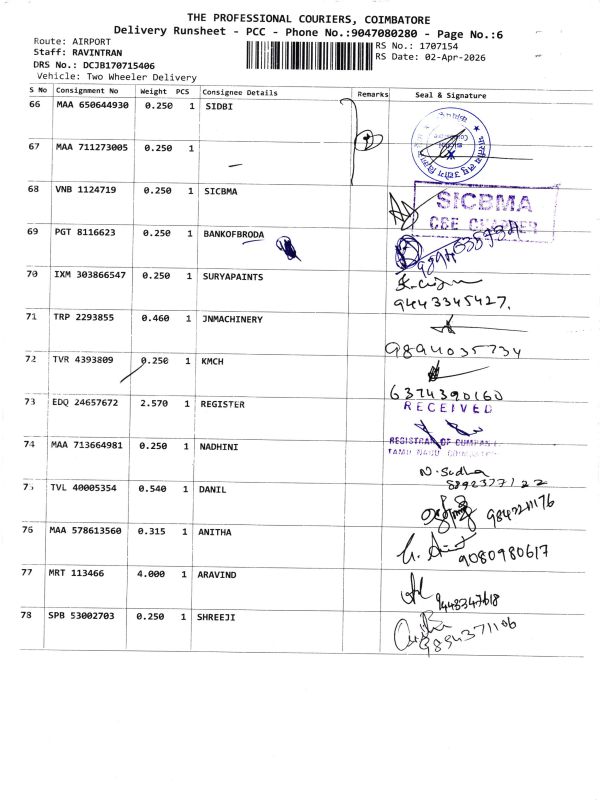 THE PROFESSIONAL COURIERS, COIMBATORE
Delivery Runsheet - PCC - Phone No.:9047080280 - Page No.:6
Route: AIRPORT
RS No.: 1707154
Staff: RAVINTRAN
RS Date: 02-Apr-2026
DRS No.: DCJB170715406
Vehicle: Two Wheeler Delivery
S No Consignment No Weight PCS Consignee Details Remarks Seal & Signature
66 MAA 650644930 0.250 1 SIDBI
67 MAA 711273005 0.250 1
68 VNB 1124719 0.250 1 SICBMA
SICBMA
CBE CHAPTER
69 PGT 8116623 0.250 1 BANKOFBRODA
70 IXM 303866547 0.250 1 SURYAPAINTS
9443345427.
71 TRP 2293855 0.460 1 JNMACHINERY
9894035734
72 TVR 4393809 0.250 1 KMCH
6374390160
73 EDQ 24657672 2.570 1 REGISTER
RECEIVED
REGISTRAR OF COMPAN
TAMIL NADU COIMBATORE
74 MAA 713664981 0.250 1 NADHINI
N. Sudha
75 TVL 40005354 0.540 1 DANIL
76 MAA 578613560 0.315 1 ANITHA
9080980617
77 MRT 113466 4.000 1 ARAVIND
9443347618
78 SPB 53002703 0.250 1 SHREEJI
9894371106